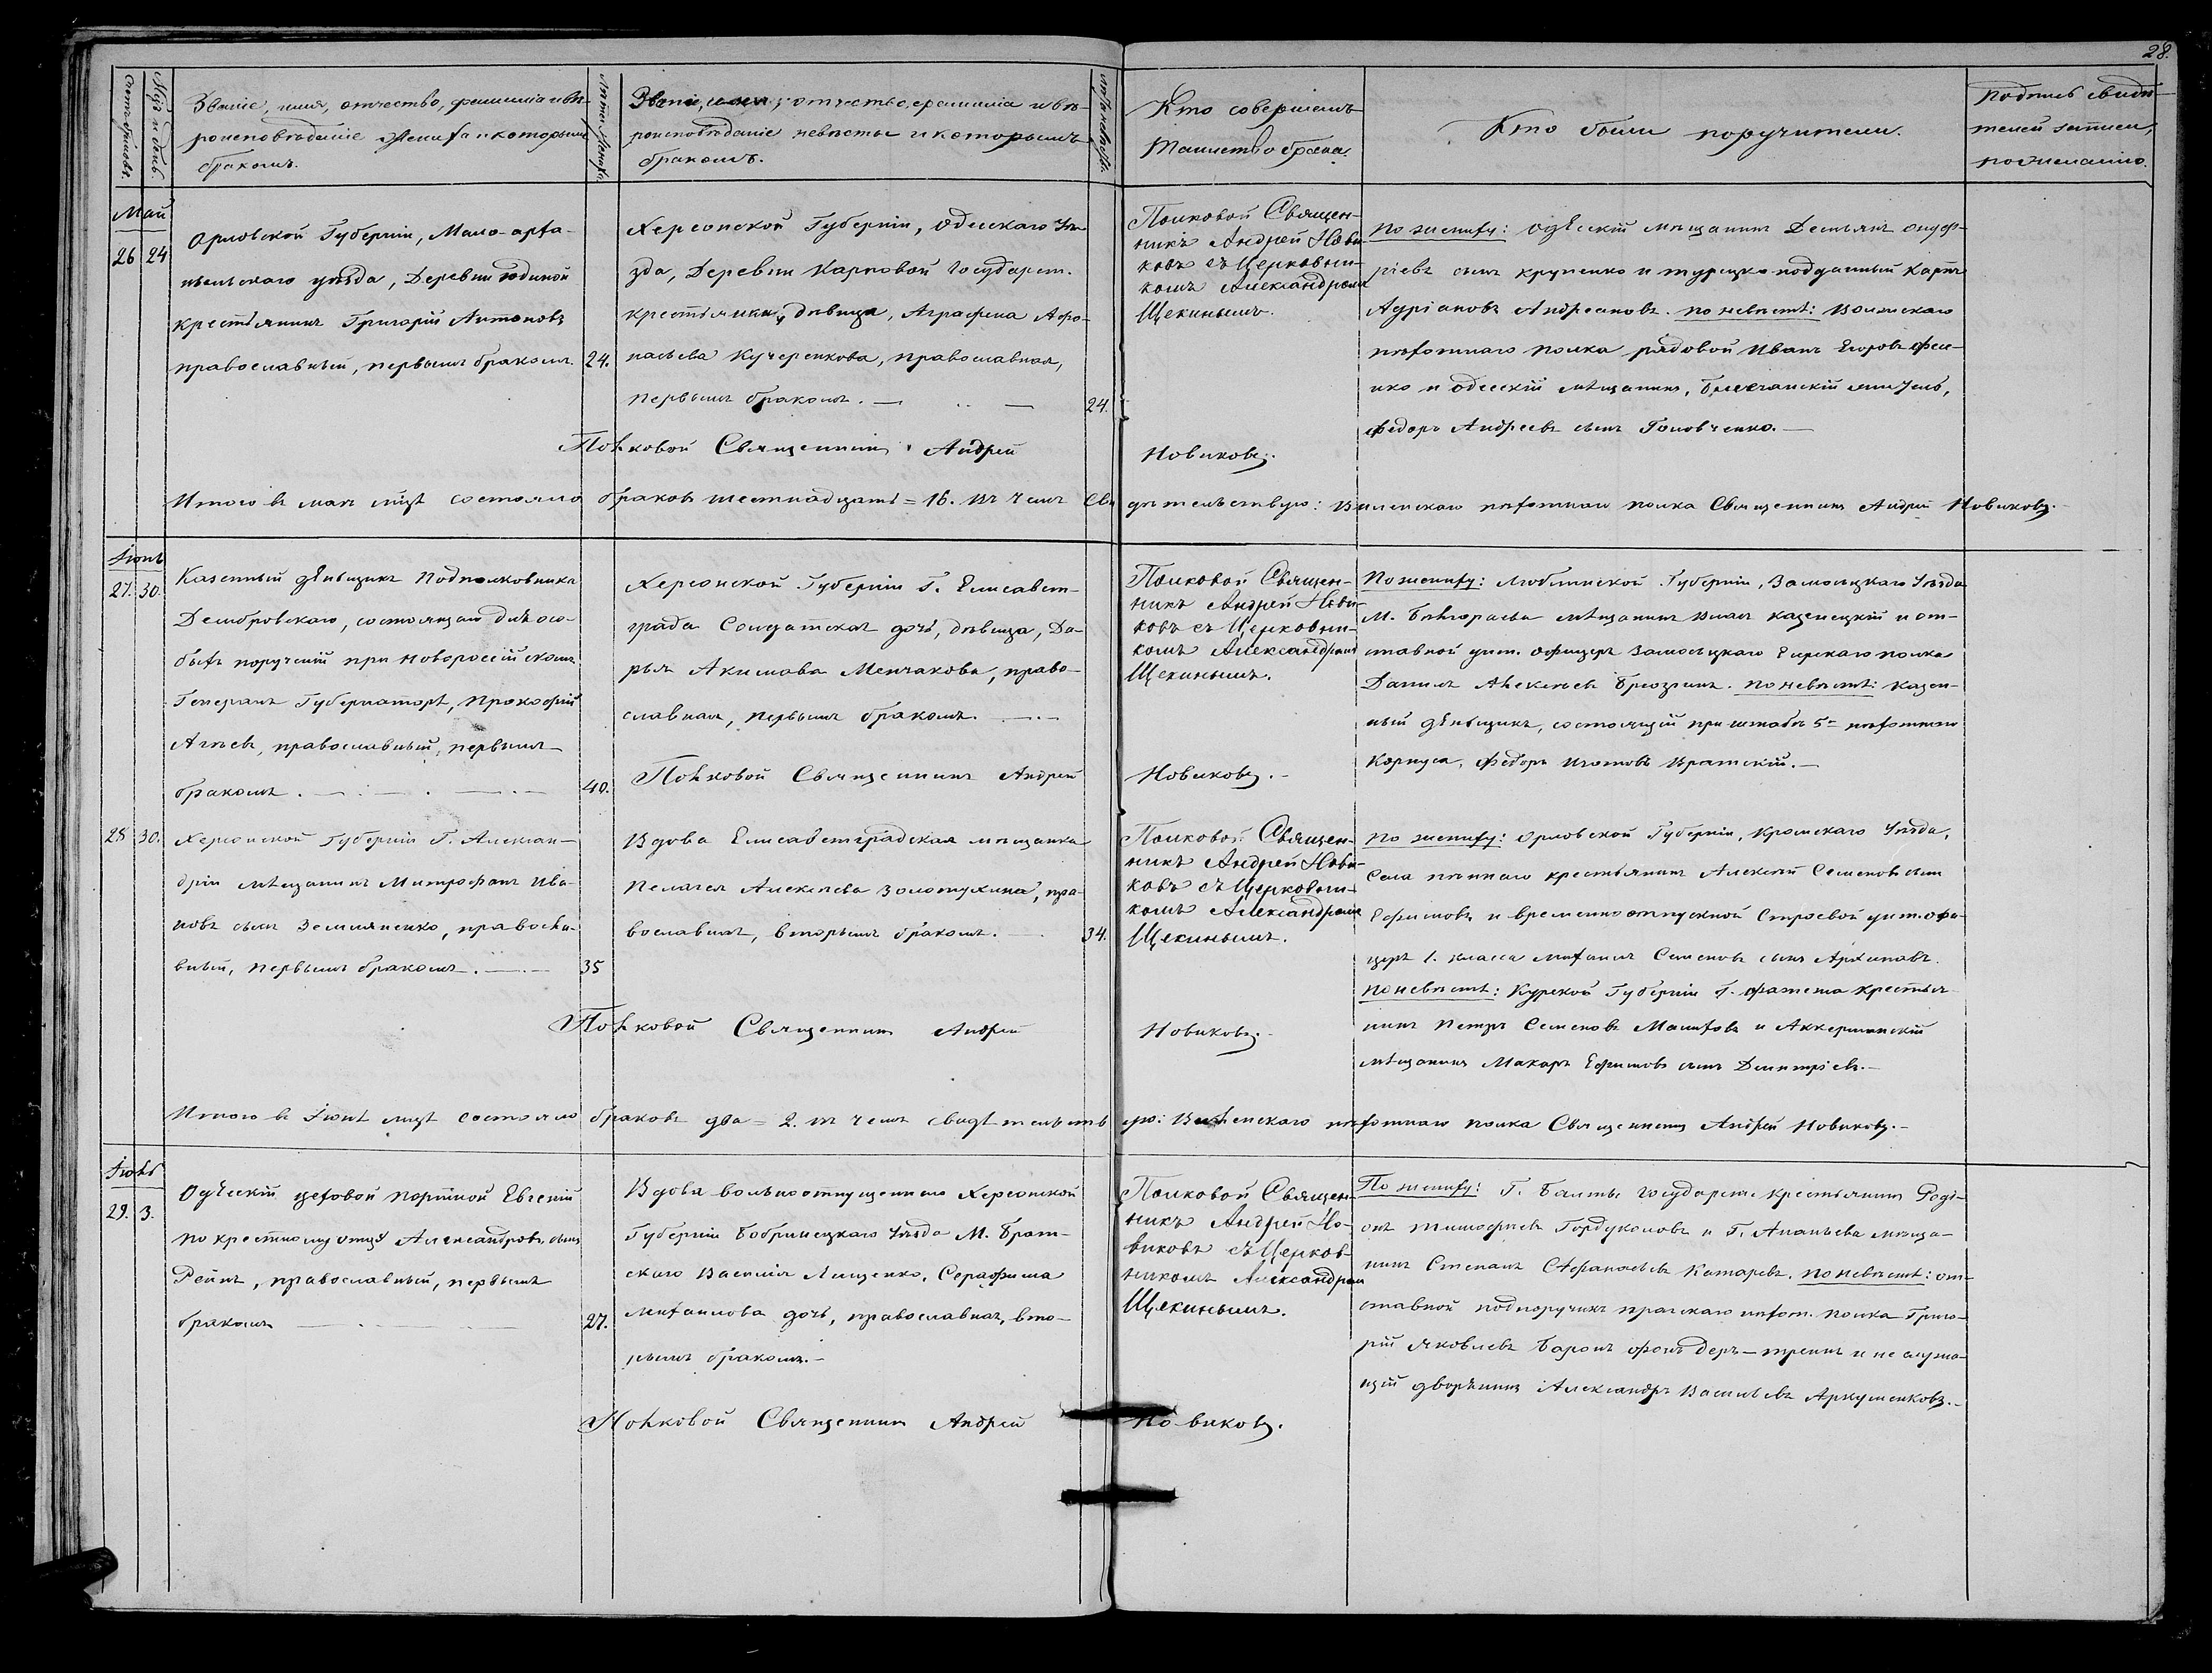 28.
Счетъ браковъ.
Мѣс. и день.
Званіе, имя, отчество, фамилія и вѣ-
роисповѣданіе жениха и которымъ
бракомъ.
Лѣта жениха.
Званіе, имя, отчество, фамилія и вѣ-
роисповѣданіе невѣсты и которымъ
бракомъ.
Лѣта невѣсты.
Кто совершалъ
таинство брака.
Кто были поручители.
Подпись свидѣ-
телей записи,
по желанію.
Май
26 24
Орловской Губерніи, Мало-арха-
нгельскаго уѣзда, Деревни Юдиной
крестьянинъ Григорій Антоновъ
православный, первымъ бракомъ. 24.
Херсонской Губерніи, Одесскаго Уѣ-
зда, Деревни Карповой Государст.
крестьянка, дѣвица, Аграфена Афо-
насьева Кучеренкова, православная,
первымъ бракомъ. — 24.
Полковой Священ-
никъ Андрей Нови-
ковъ съ Церковни-
комъ Александромъ
Щекинымъ.
По жениху: Одѣсскій мѣщанинъ Демьянъ Онуф-
ріевъ сынъ Крупенко и турецко подданный Карпъ
Адріановъ Андреановъ. по невѣстѣ: Волынскаго
пѣхотнаго полка рядовой Иванъ Егоровъ
и одесскій мѣщанинъ,
Федоръ Андреевъ сынъ Головченко. —
Полковой Священникъ Андрей Новиковъ.
Итого въ маѣ мцѣ состояло браковъ шестнадцать = 16. Въ чемъ свидѣтельствую: Виленскаго пѣхотнаго полка Священникъ Андрей Новиковъ.
Іюнь
27. 30.
Казенный дѣньщикъ Подполковника
Дембровскаго, состоящаго для осо-
быхъ порученій при Новороссійскомъ
Генералъ Губернаторѣ, Прокофій
Агѣевъ, православный, первымъ
бракомъ. — 40.
Херсонской Губерніи Г. Елисавет-
града Солдатская дочь, дѣвица, Да-
рья Акимова Менчакова, право-
славная, первымъ бракомъ. —
Полковой Священ-
никъ Андрей Нови-
ковъ съ Церковни-
комъ Александромъ
Щекинымъ.
По жениху: Люблинской Губерніи, Замосцкаго Уѣзда
М. Бѣлгорая мѣщанинъ и от-
ставной унт. офицеръ Замосцкаго Егерскаго полка
Данила Алексѣевъ. по невѣстѣ: казен-
ный дѣньщикъ, состоящій при штабѣ 5го пѣхотнаго
Корпуса, Федоръ Изотовъ Братскій. —
Полковой Священникъ Андрей Новиковъ. —
28 30.
Херсонской Губерніи Г. Алексан-
дріи мѣщанинъ Митрофанъ Ива-
новъ сынъ Земляненко, правосла-
вный, первымъ бракомъ. — 35
Вдова Елисаветградская мѣщанка
Пелагея Алексѣева Золотухина, пра-
вославная, вторымъ бракомъ. — 34.
Полковой Священ-
никъ Андрей Нови-
ковъ съ Церковни-
комъ Александромъ
Щекинымъ.
По жениху: Орловской Губерніи, Кромскаго Уѣзда,
Села крестьянинъ Алексѣй Семеновъ сынъ
Ефимовъ и временно отпускной Строевой унт. офи-
церъ 1. класса Михаилъ Семеновъ сынъ Архиповъ.
По невѣстѣ: Курской Губерніи Г. Фатежа крестья-
нинъ Петръ Семеновъ Малиховъ и Аккерманскій
мѣщанинъ Макаръ Ефимовъ сынъ Дмитріевъ. —
Полковой Священникъ Андрей Новиковъ. —
Итого въ Іюнѣ мцѣ состояло браковъ два = 2. въ чемъ свидѣтельствую: Виленскаго пѣхотнаго полка Священникъ Андрей Новиковъ. —
Іюль
29. 3.
Одѣсскій цеховой портной Евгеній
по крестному отцу Александровъ сынъ
Рейнъ, православный, первымъ
бракомъ — 27.
Вдова вольноотпущеннаго Херсонской
Губерніи Бобринецкаго Уѣзда М. Брат-
скаго Василія Лященко, Серафима
Михаилова дочь, православная, вто-
рымъ бракомъ. —
Полковой Священ-
никъ Андрей Но-
виковъ съ Церков-
никомъ Александромъ
Щекинымъ.
По жениху: Г. Балты государств. крестьянинъ Роді-
онъ Тимофѣевъ Гордуколовъ и Г. Ананьева мѣща-
нинъ Степанъ Афанасьевъ Катаревъ. по невѣстѣ: от-
ставной подпоручикъ Пражскаго пѣхот. полка Григо-
рій Яковлевъ Баронъ фонъ деръ-Тренкъ и не служа-
щій дворянинъ Александръ Васильевъ Аркушенковъ. —
Полковой Священникъ Андрей Новиковъ.